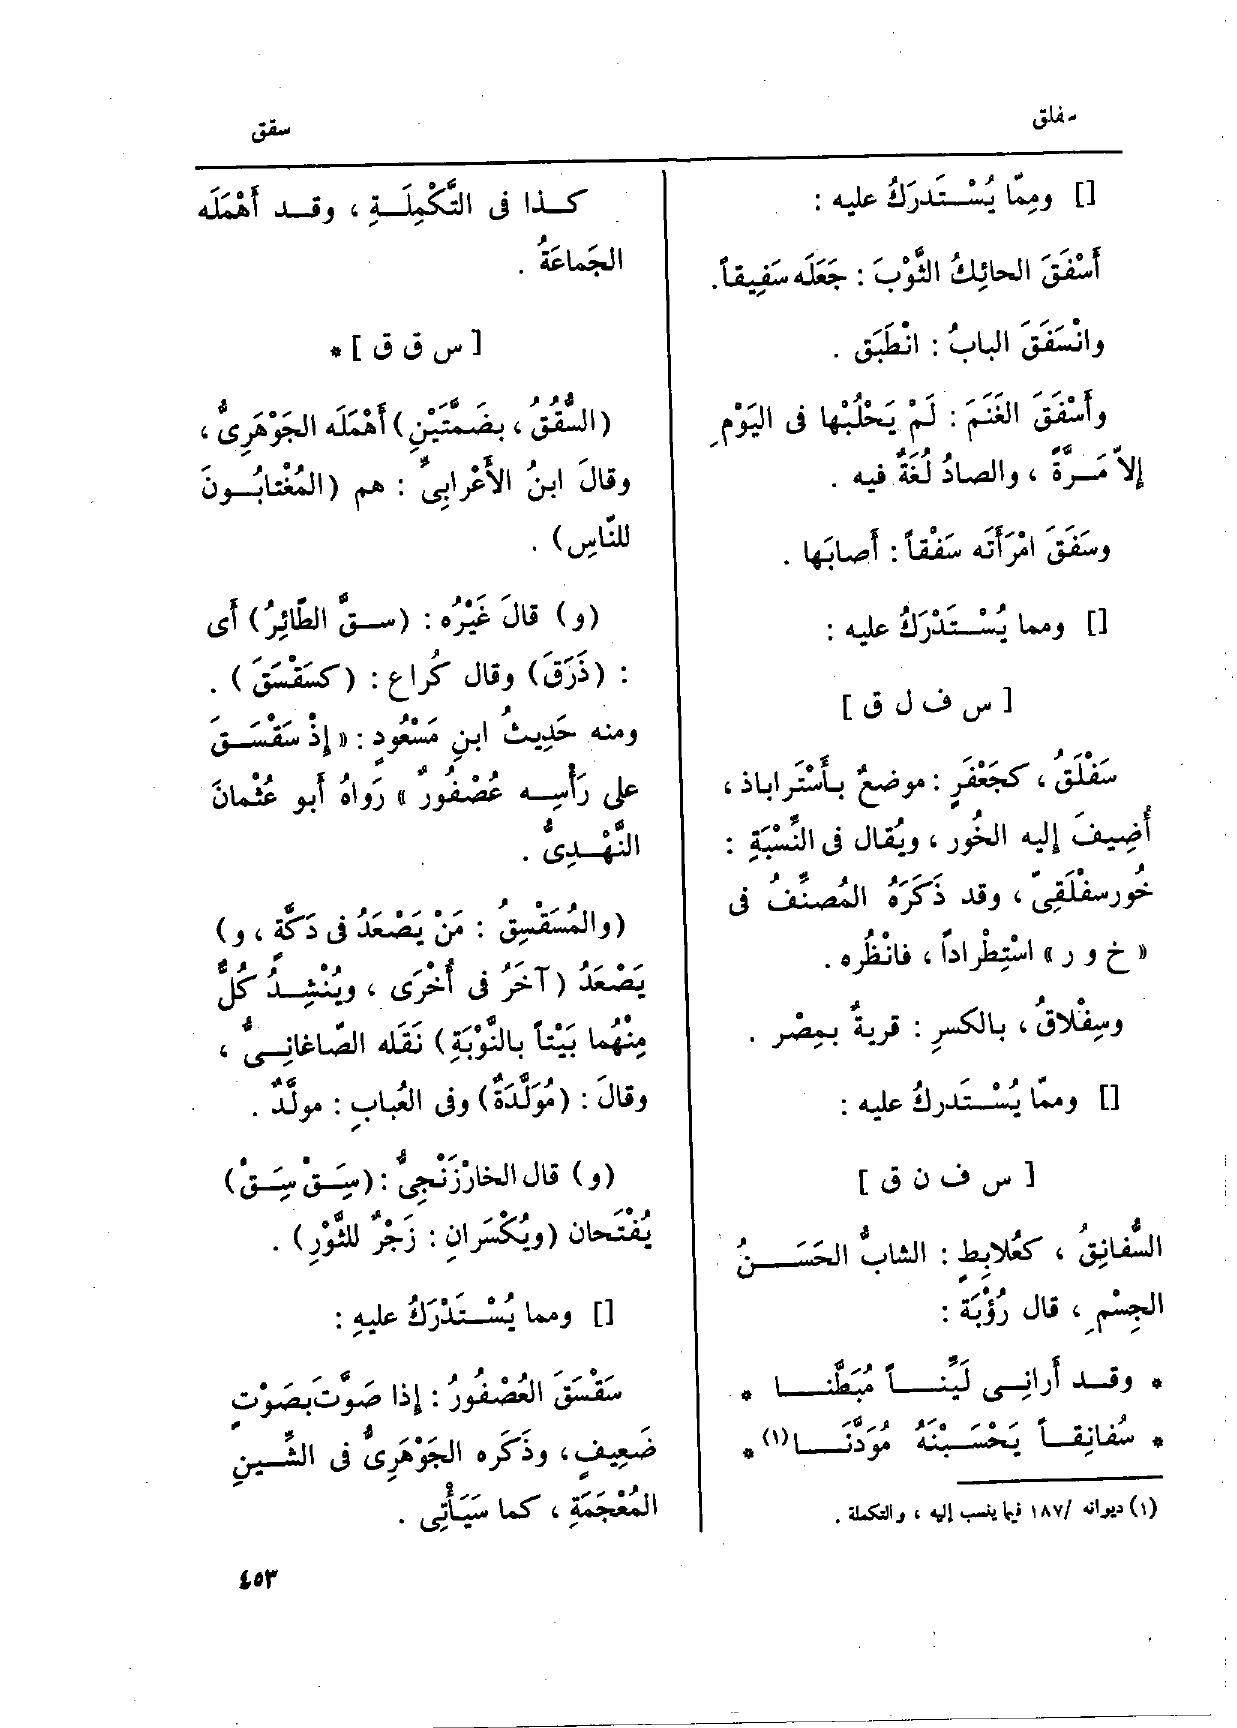 سفلق
سقق
[] ومِمّا يُسْتَدرَكُ عليه :
أَسْفَقَ الحائِكُ الثَّوْبَ : جَعَلَه سَفِيقاً.
وانْسَفَقَ البابُ : انْطَبَق .
وأَسْفَقَ الغَنَمَ : لَمْ يَحْلُبْها فى اليَوْمِ
إلاّ مَرَّةً ، والصادُ لُغَةٌ فيه .
وسَفَقَ امْرَأَتَه سَفْقاً : أَصابَها .
[] ومما يُسْتَدْرَكُ عليه :
[ س ف ل ق ]
سَفْلَقُ ، كجَعْفَرٍ : موضعٌ بأَسْتَراباذ ،
أُضِيفَ إليه الخُور ، ويُقال فى النِّسْبَةِ :
خُورسفْلَقِىّ ، وقد ذَكَرَهُ المُصنِّفُ فى
« خ و ر » اسْتِطْراداً ، فانْظُره .
وسِفْلاقُ ، بالكسرِ : قريةٌ بمِصْر .
[] وممّا يُسْتَدركُ عليه :
[ س ف ن ق ]
السُّفانِقُ ، كعُلابِطٍ : الشابُّ الحَسَنُ
الجِسْمِ ، قال رُؤْبَة :
* وقد أَرانِى لَيِّناً مُبَطَّنا *
* سُفانِقاً يَحْسَبْنَهُ مُوَدَّنَا (١) *
(١) ديوانه /١٨٧ فيما ينسب إليه ، والتكملة .
كذا فى التَّكْمِلَةِ ، وقد أَهْمَلَه
الجَماعَةُ .
[ س ق ق ] *
(السُّقُقُ ، بضَمَّتَيْنِ) أَهْمَلَه الجَوْهَرِىُّ ،
وقالَ ابنُ الأَعْرابِىِّ : هم (المُغْتابُونَ
للنّاسِ) .
(و) قالَ غَيْرُه : (سقَّ الطّائِرُ) أَى
: (ذَرَقَ) وقال كُراع : (كسَقْسَقَ) .
ومنه حَدِيثُ ابنِ مَسْعُودٍ : « إذْ سَقْسَقَ
على رَأْسِه عُصْفُورٌ » رَواهُ أَبو عُثْمانَ
النَّهْدِىُّ .
(والمُسَقْسِقُ : مَنْ يَصْعَدُ فى دَكَّةٍ ، و)
يَصْعَدُ (آخَرُ فى أُخْرَى ، ويُنْشِدُ كُلٌّ
مِنْهُما بَيْتاً بالنَّوْبَةِ) نَقَله الصّاغانِىُّ ،
وقالَ : (مُوَلَّدَةٌ) وفى العُبابِ : مولَّدٌ .
(و) قال الخارْزَنْجِىُّ : (سِقْ سِقْ)
يُفْتَحان (ويُكْسَرانِ : زَجْرٌ للثَّوْرِ) .
[] ومما يُسْتَدْرَكُ عليهِ :
سَقْسَقَ العُصْفُورُ : إذا صَوَّتَ بصَوْتٍ
ضَعِيفٍ ، وذَكَره الجَوْهَرِىُّ فى الشِّينِ
المُعْجَمَةِ ، كما سَيَأْتِى .
٤٥٣